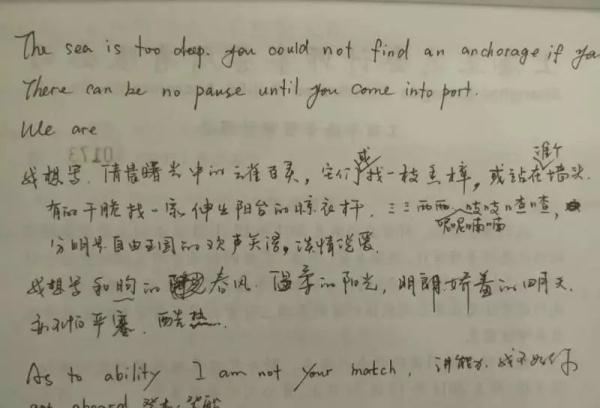 The sea is too deep. you could not find an anchorage if you
There can be no pause until you come into port.
We are
0173
谁个
我想写. 清晨曙光中的云雀百灵, 它们或找一枝香樟, 或站在墙头.
有的干脆找一家伸出阳台的晾衣杆. 三三两两 吱吱喳喳,
呢呢喃喃
分明是自由王国的欢声笑语, 谈情说爱.
我想写和煦的春风. 温柔的阳光, 明朗娇羞的四月天.
亦不怕严寒. 酷热.
As to ability I am not your match. 讲能力. 我不如你
get aboard